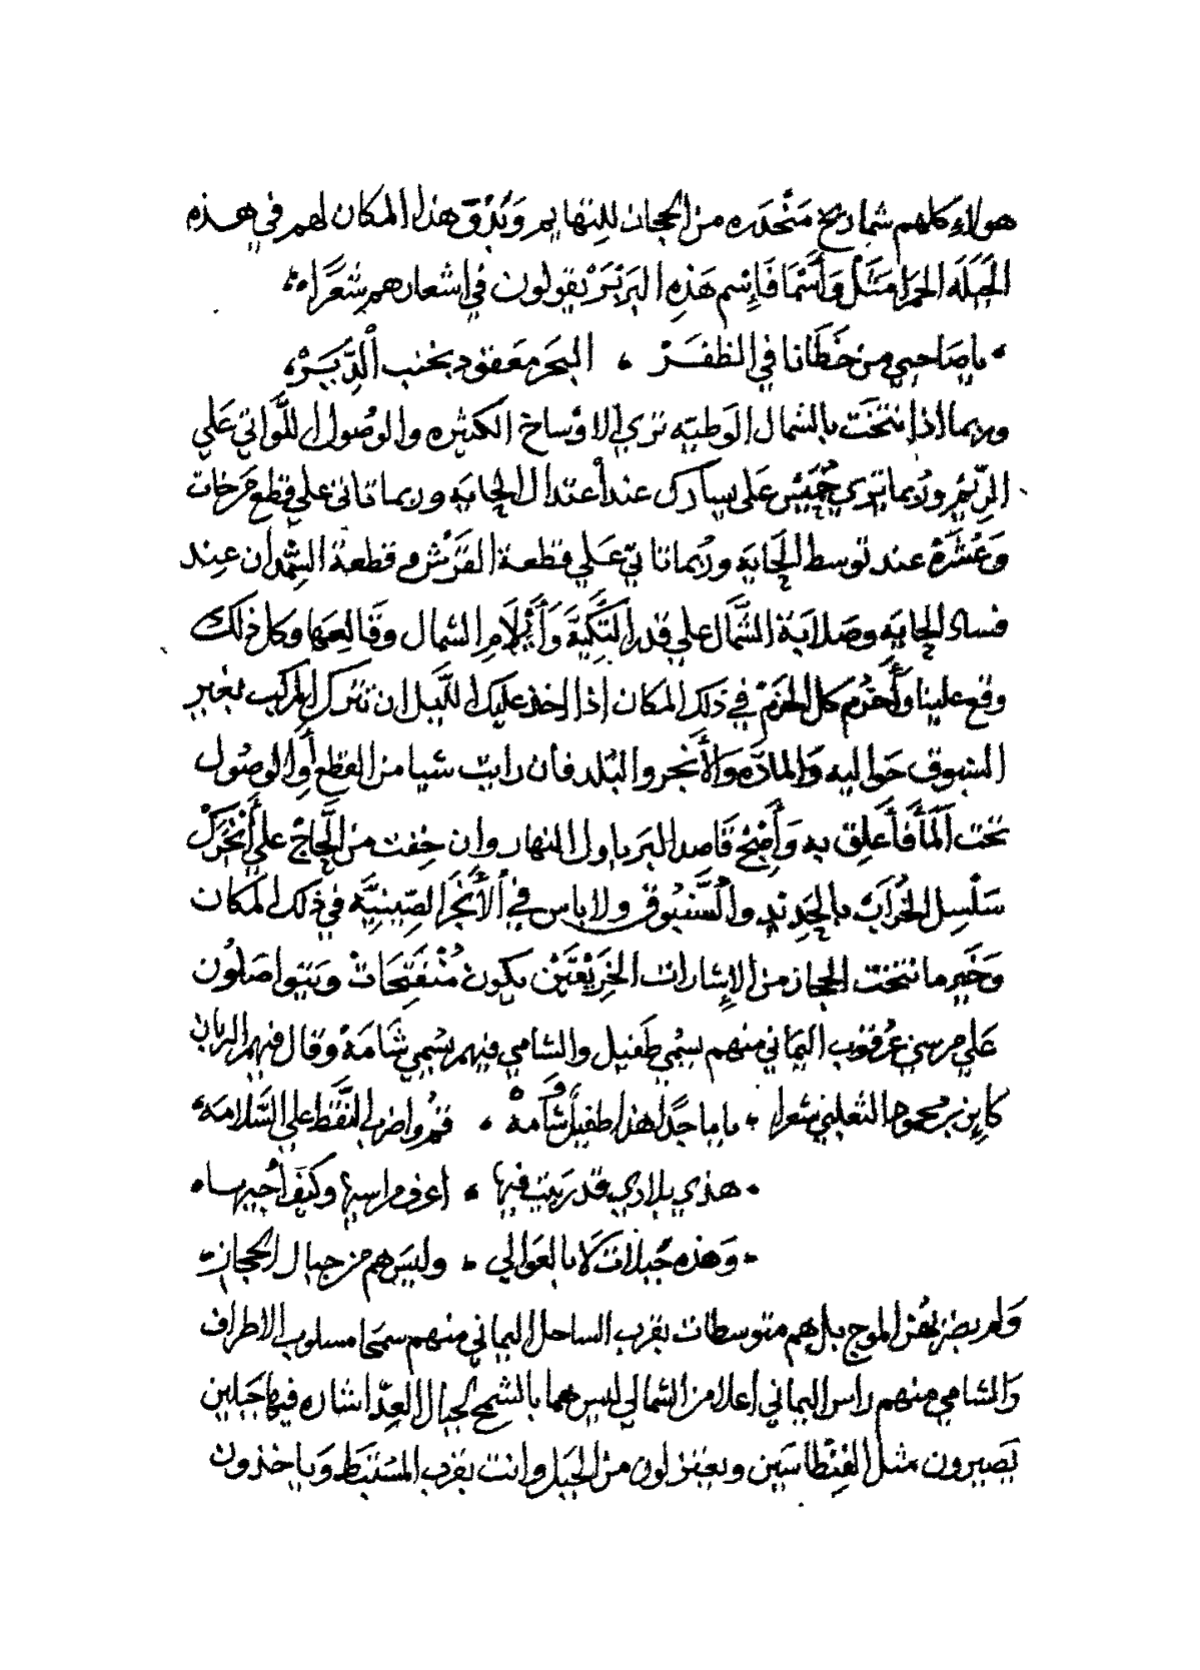 هولاء كلهم شماريخ متحدره من الحجاز للتهايم ونُدُقّ هذا المكان لهم في هذه
الجَبَلَه الحمرا مَثَلْ وَأسْمَا فَإِسم هَذِهِ البَرْبَرْ يقولون في اشعارهم شِعَرًا
ياصَاحبي من خَطَانا في الظفَرْ ، البَحر معَقود بجنب الدِّبَرْ
وربما اذا نتخَت بالشمال الوَطيّه تري الاوْساخ الكثيره والوصُول اللَّواتي عَلي
الزيم وربما تري خميس عَلى يسارك عند اعتدال الجايه وربما تاتي علي قطع مرخات
وَعُشَرَهْ عند توسط الجَايه ورُبما تاتي عَلي قطعة القَرْش وقطعة الشِّمْدان عِند
فساد الجايه وصَلابَة الشَّمَال علي قدر التَّكِيَّة وَأَيَّام الشمال وقَالعِهَا وكل ذلك
وقع علينا وَأَحْزم كل الحزم في ذلك المكان إذا اخذ عليك اللَّيل ان تترك المركب بغير
السُبوق حَواليه وَالمادّه وَالأَنجر والبُلد فان رايت شيا من القطع أو الوصُول
تحت آلمَا فَأَعلق به وَأَصْبحْ قاصد البَر باول النهار وان خِفت من اللَّجاج علي أنْجَرِكْ
سَلْسِل الخُرابْ بالحَدِيد والسَّنبُوق ولا باس في الأَنْجَر الصِّينيَّه في ذلك المَكان
وَخَير ما نتخت الحجاز من الإِشارات الخَرِيقَتَيْن يكون مُنْفَتِحَاتْ ويتواصَلُون
عَلي مرسي عُرقوب اليَماني منهم يسُمي طَفيل والشامي فيهم يسُمي شَامَهْ وقال فيهم الربان
كايِن بر محمود الثعلبي شعرا ، ياما جَدَا هذا طفيل وشَامهْ ، قمُ واضرب النَّقَط علي السَّلامه
هذي بلادي قد ربيت فيها ، اعرف مراسيها وكَيفَ أجيها
وَهذه جُبَيلات كلا بالعَوالي ، وليسَ هم من جبال الحجاز
وَلم يضربهُم الموج بل هم متوسطات بقرب الساحل اليماني منهم سمي مسلوب الاطراف
وَالشامي منهم راس اليماني اعلا من الشمالي ليس هما بالشمخ الجبال العِدّ اشاره فيها جَبلين
يَصيرون مثل الفِنْطاسَين ويعتزلون من الجَبل وانت بقرب المسْتنبَط وَياخذون